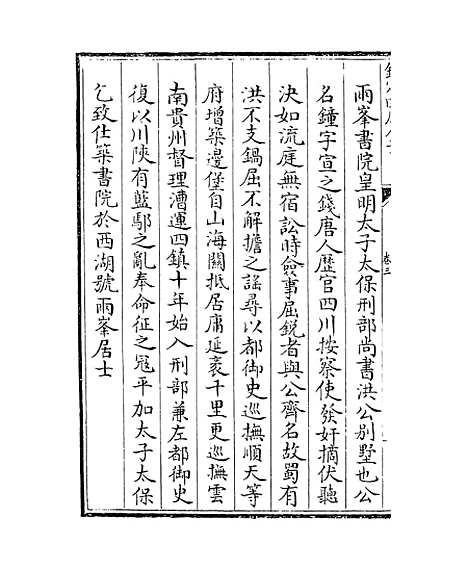 兩峯書院皇明太子太保刑部尚書洪公别墅也公
名鐘字宣之錢唐人歷官四川按察使發奸摘伏聽
決如流庭無宿訟時僉事屈鋭者與公齊名故蜀有
洪不支鍋屈不解擔之謡尋以都御史巡撫順天等
府增築邊堡自山海關抵居庸延袤千里更巡撫雲
南貴州督理漕運四鎮十年始入刑部兼左都御史
復以川陜有藍鄢之亂奉命征之冦平加太子太保
乞致仕築書院於西湖號兩峯居士
卷三